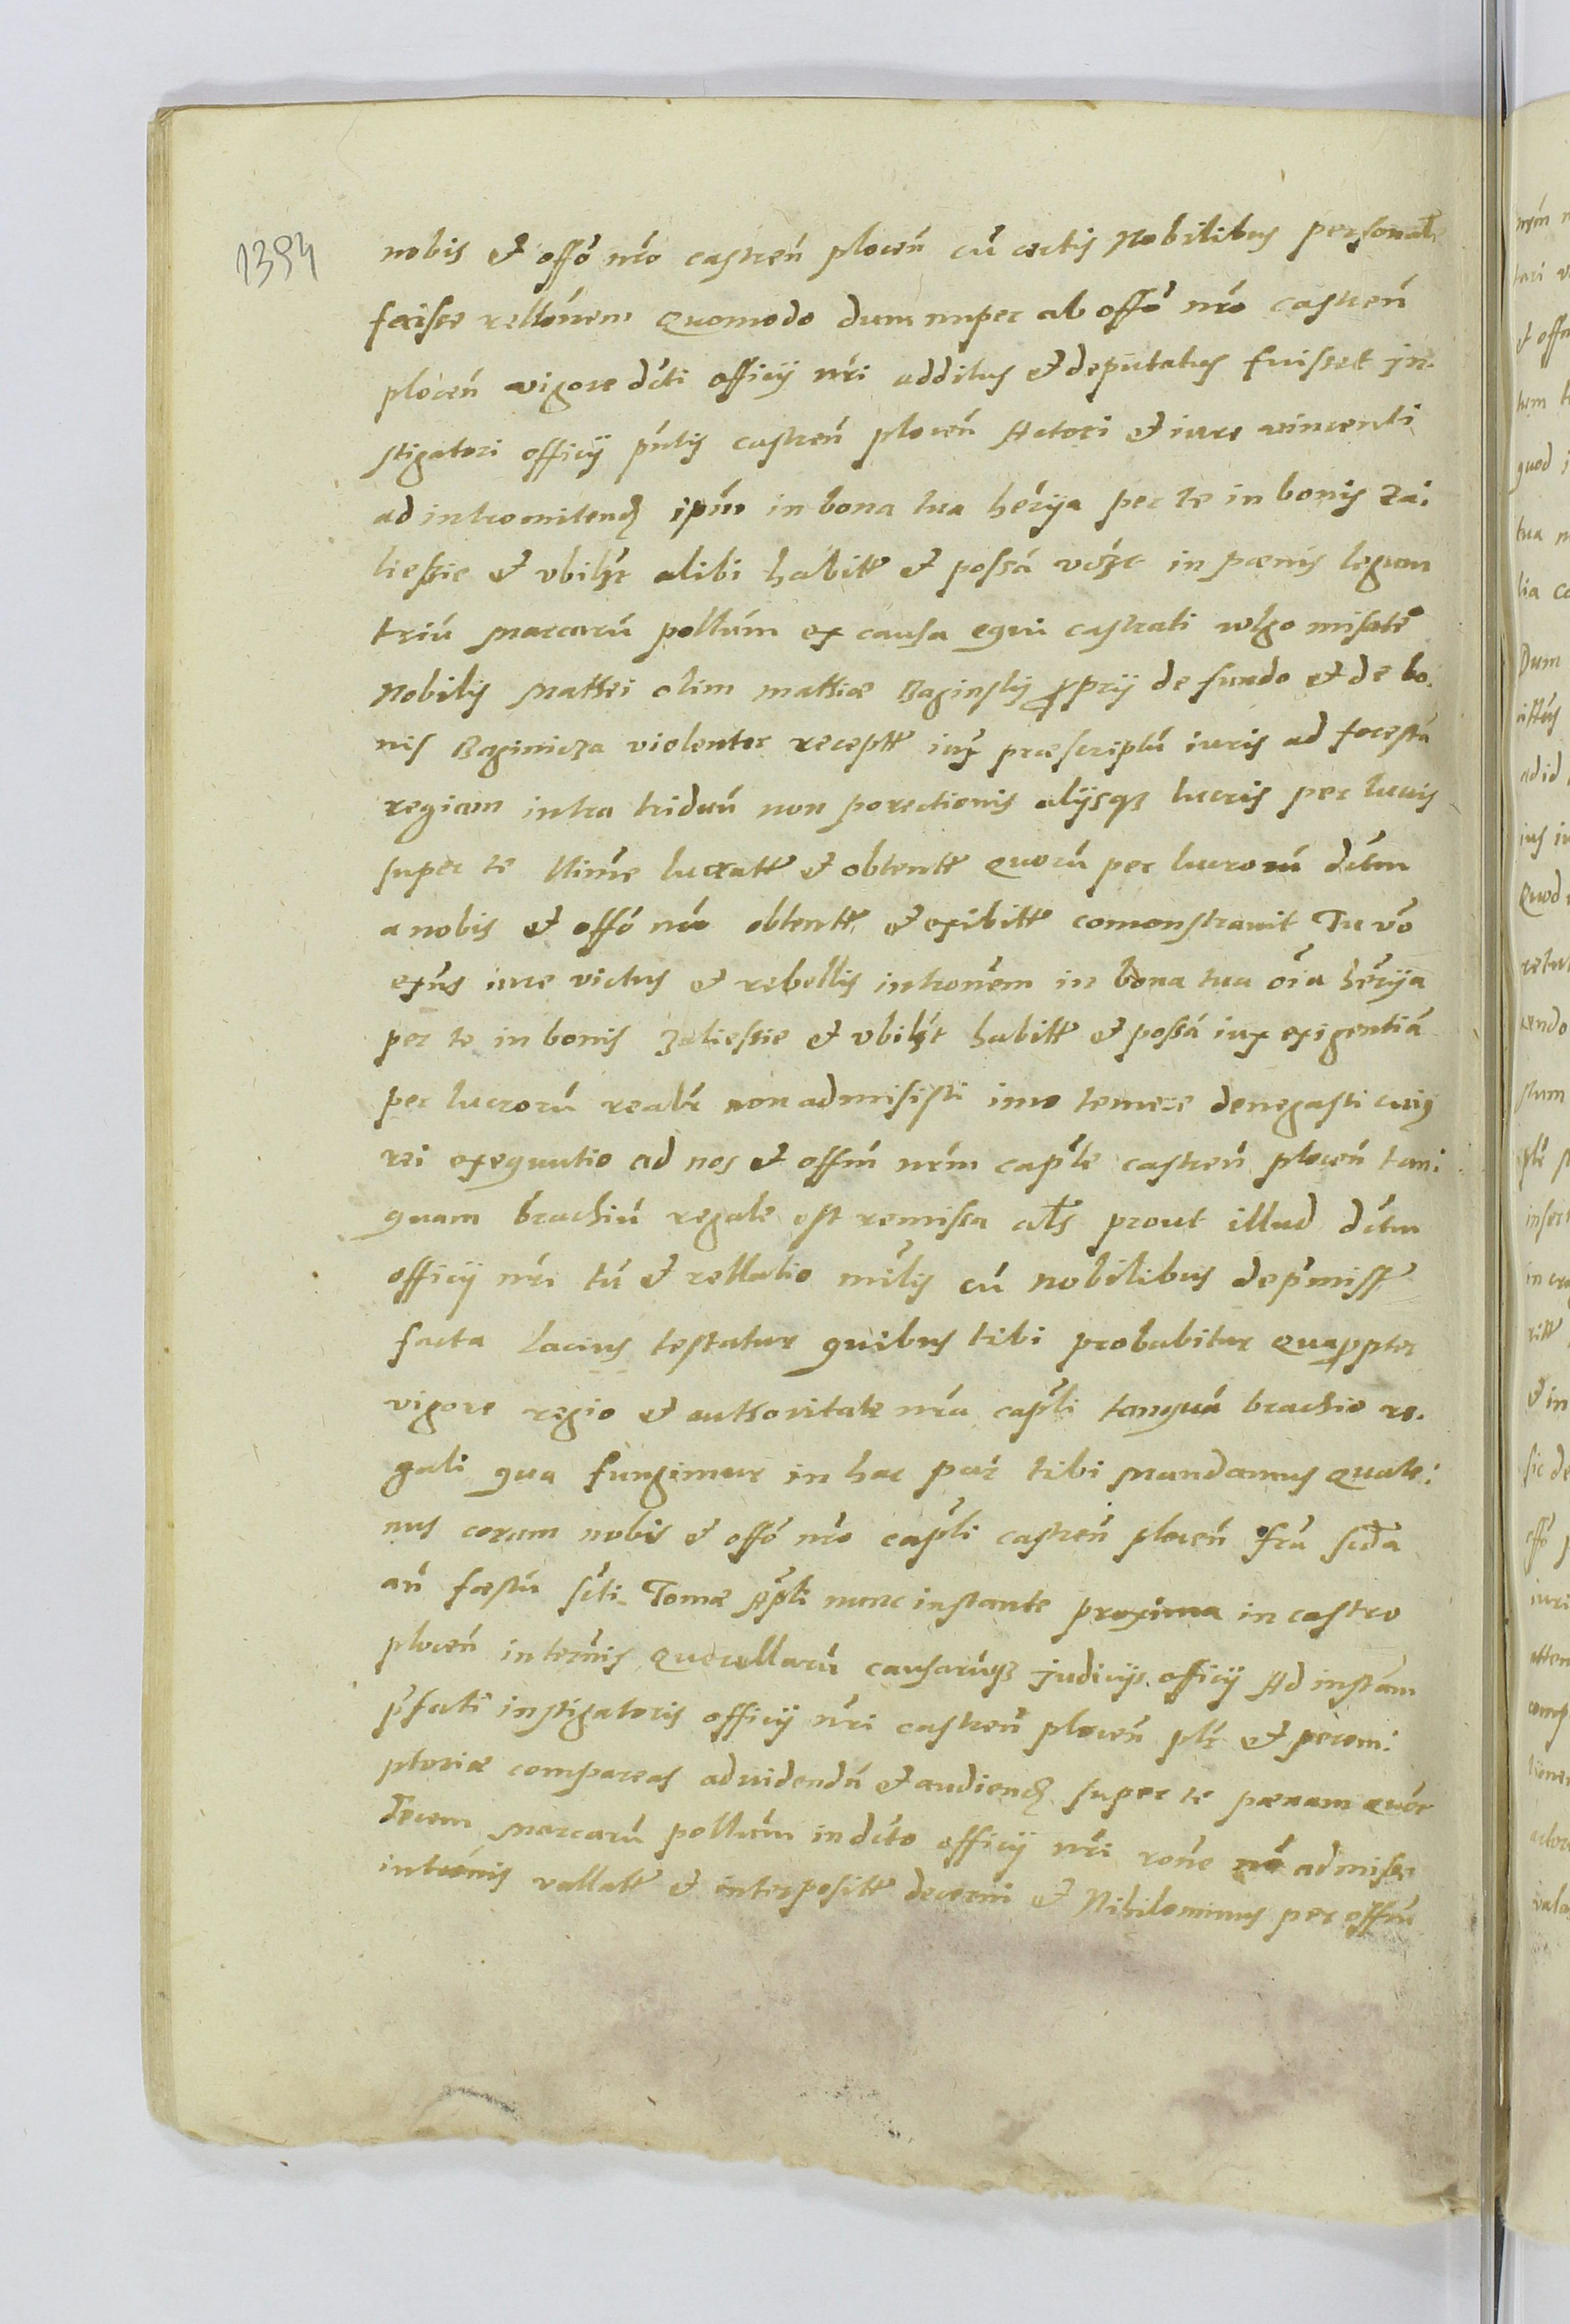 1394
nobis et offõ nr̃o castreñ ploceñ cũ certis Nobilibus personal̃r
fecisse rellõnem Quomodo dum nuper ab offõ nr̃o castreñ
ploceñ vigore dc̃ti officij nr̃i additus et deputatus fuisset In-
stigatori officij pñtis castreñ ploceñ Actori et iure vincenti
ad intromitend ip̃m in bona tua her̃ija per te in bonis Zai
liessie et vbilꝫt alibi habitt et possã vꝫt in pœnis legum
triũ Marcarũ pollum ex causa equi castrati
Nobilis Matthei olim Matthiæ Baginsky proprij de fundo et de bo-
nis Baginicza violenter receptt iux præscriptũ iuris ad forestã
regiam intra triduũ non porectionis alijsqꝫ lucris per lucris
super te ultime lucratt et obtentt Quorũ per lucrorũ dc̃tum
a nobis et offõ nr̃o obtentt et exibitt comonstravit Tu võ
exñs iure victus et rebellis intronẽm in bona tua oĩa her̃ija
per te in bonis Zaliessie et vbilꝫt habitt et possã iux exigentiã
per lucrorũ realr̃ non admisisti imo temere denegasti cuius
rei exequutio ad nos et offm nr̃m capt̃le castreñ ploceñ tan:
quam brachiũ regale est remissa al̃s prout illud dc̃tum
officij nr̃i tũ et rellatio mi̅lis cũ nobilibus depmiss
facta lacius testatur quibus tibi probabitur Quapropter
vigore regio et authoritate nr̃a capt̃li tanquã brachio re-
gali qua fungimur in hac par̃ tibi Mandamus Quate:
nus coram nobis et offõ nr̃o capt̃li castreñ ploceñ fr̃a scd̃a
añ fæstũ sc̃ti Tomæ Apl̃i nunc instante proxima in castro
ploceñ in termĩs Querellarũ causarũqꝫ Judicijs officij Ad instãm
p̃fati instigatoris officij nr̃i castreñ ploceñ plr̃ et perem:
ptoriæ compareas ad videndũ et audiend super te pœnam Quor
decem Marcarũ pollum in dc̃to officij nr̃i rõne nõ admissæ
intrõnis vallatt et interpositt decerni et Nihilominus per offm